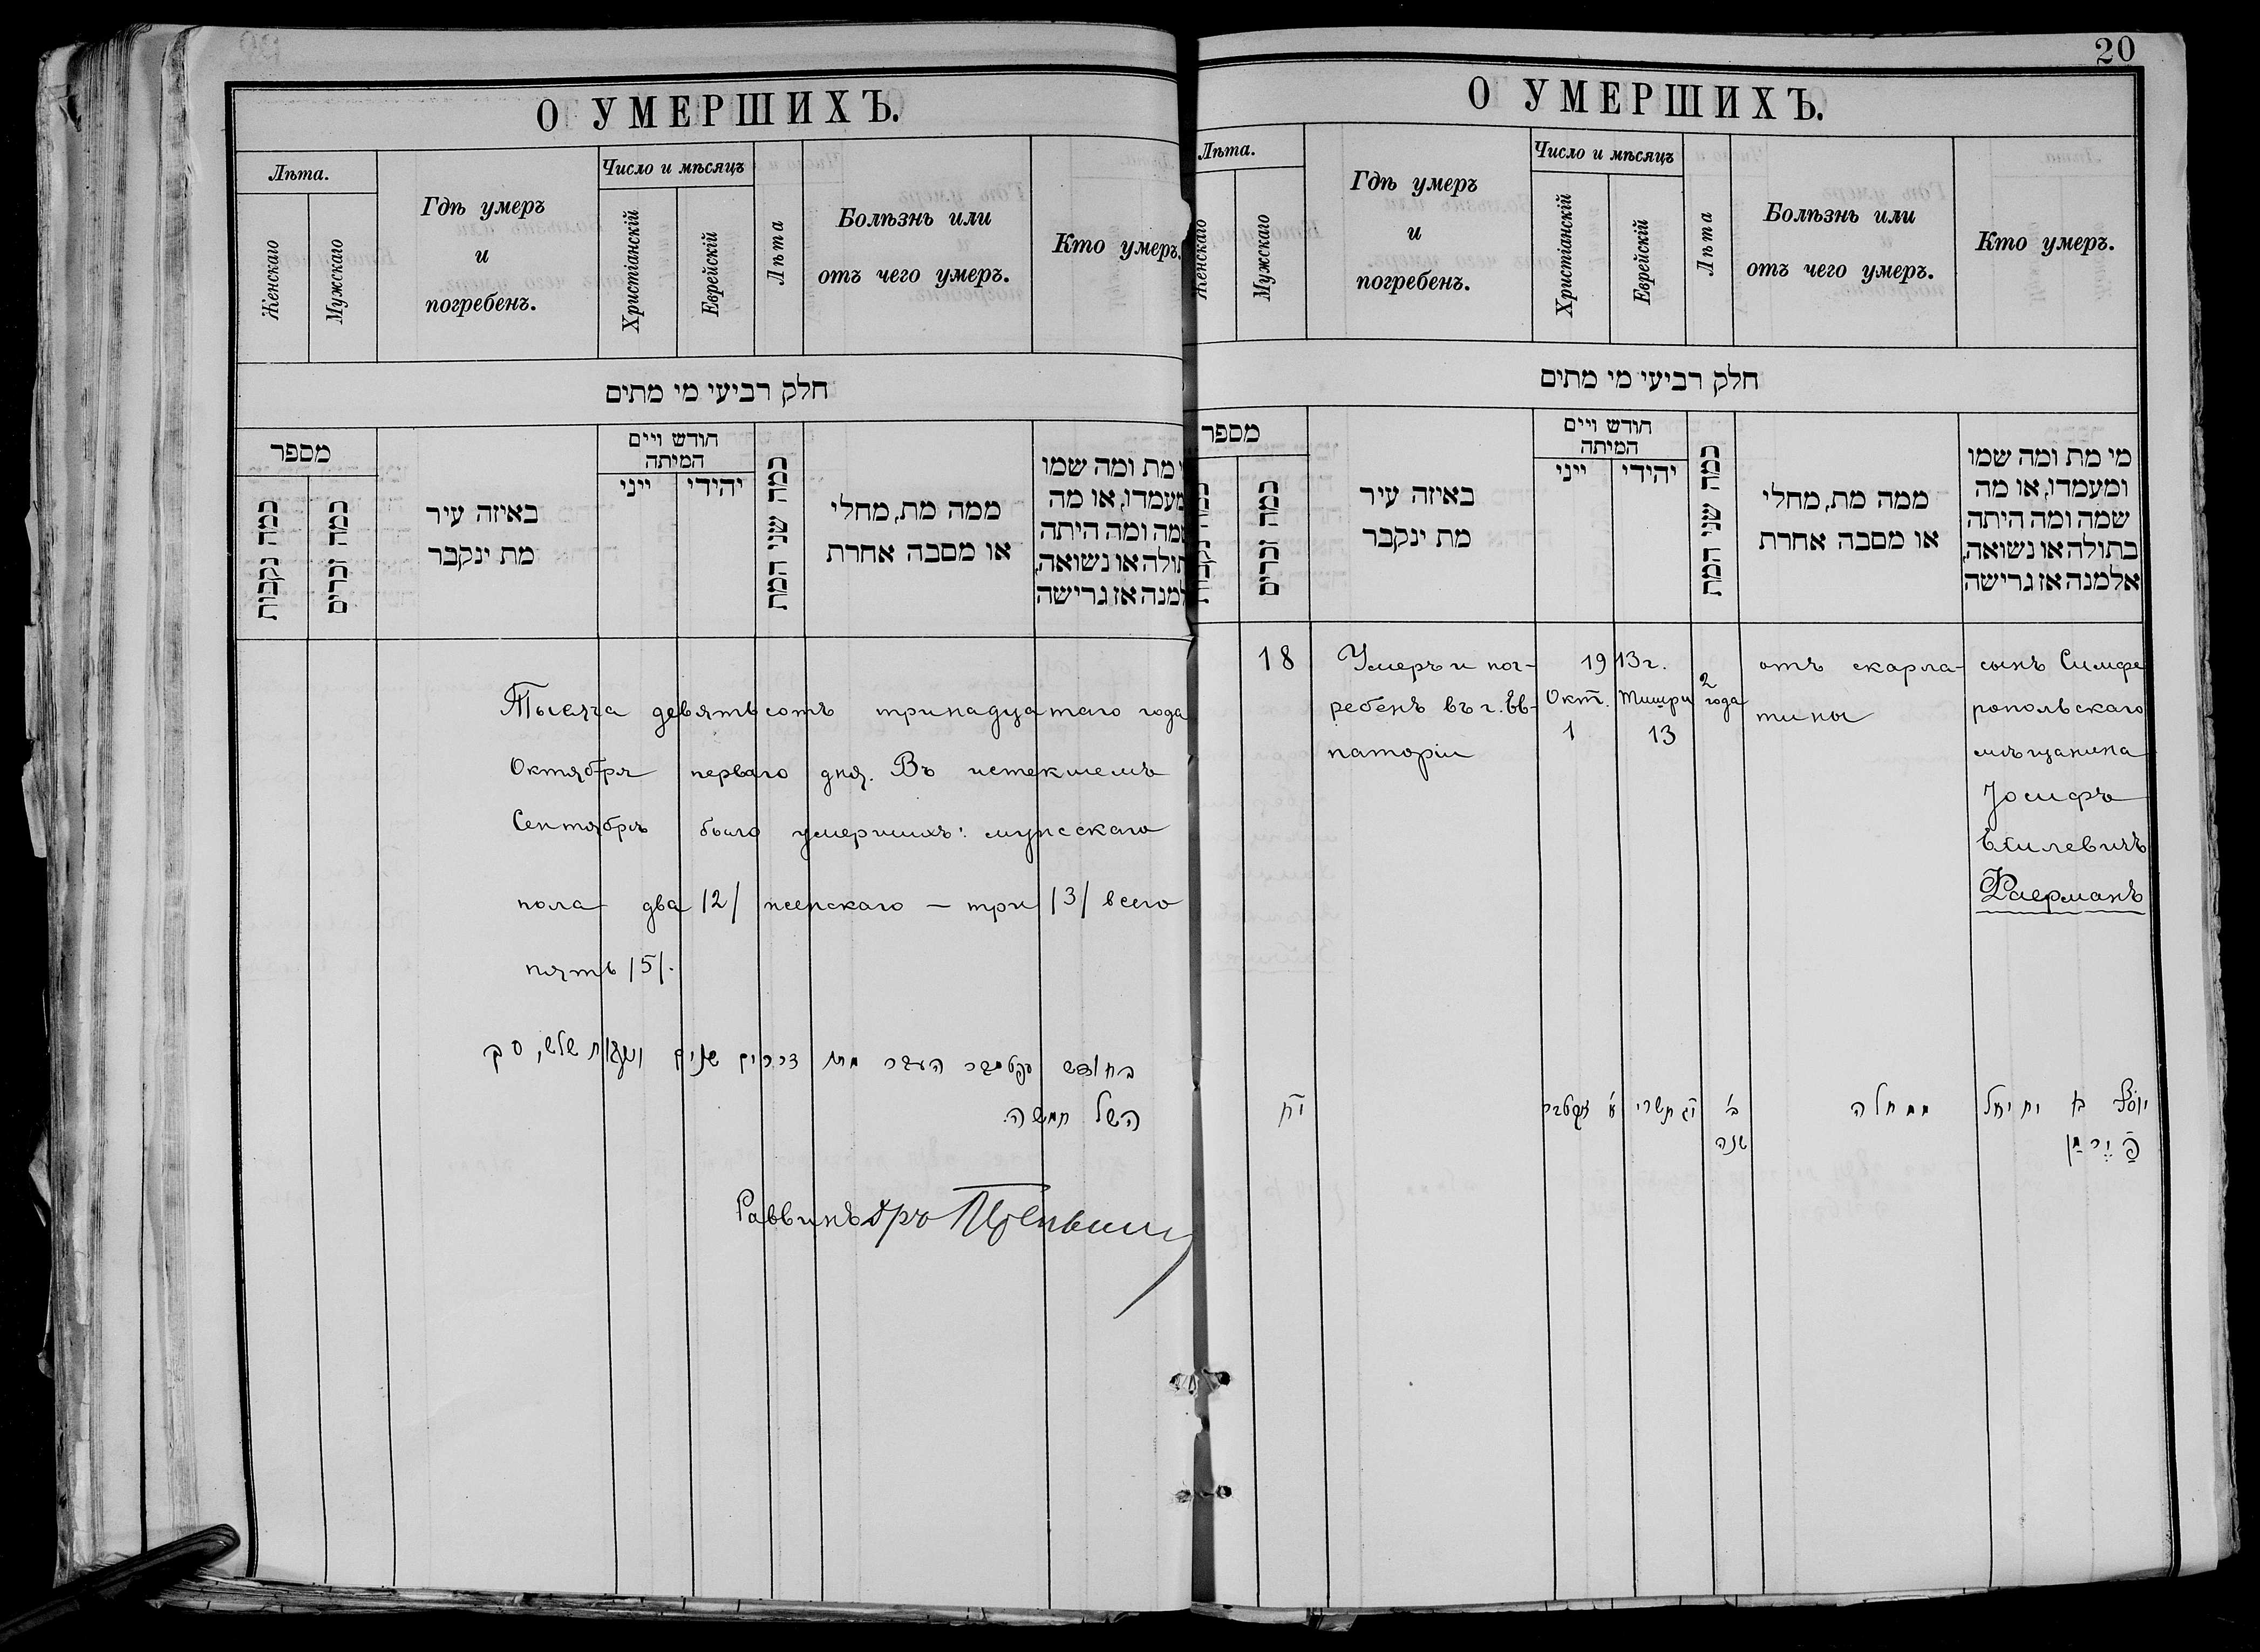 О УМЕРШИХЪ.
Лѣта.
Женскаго
Мужскаго
Гдѣ умеръ
и
погребенъ.
Число и мѣсяцъ
Христіанскій
Еврейскій
Лѣта
Болѣзнь или
отъ чего умеръ.
Кто умеръ.
חלק רביעי מי מתים
מספר
כמה נקבות
כמה זכרים
באיזה עיר
מת ינקבר
חודש ויים
המיתה
ייני
יהידי
כמה שני המת
ממה מת, מחלי
או מסבה אחרת
מת ומה שמו
מעמדו, או מה
שמה ומה היתה
תולה או נשואה,
למנה אז גרישה
Тысяча девятьсотъ тринадцатаго года
Октября перваго дня. Въ истекшемъ
Сентябрѣ было умершихъ: мужскаго
пола два /2/ женскаго — три /3/ всего
пять /5/.
בחודש ספטמבר העבר מתו זכרים שנים ונקבות שלש, סך
הכל חמשה.
Раввинъ
20
О УМЕРШИХЪ.
Лѣта.
Женскаго
Мужскаго
Гдѣ умеръ
и
погребенъ.
Число и мѣсяцъ
Христіанскій
Еврейскій
Лѣта
Болѣзнь или
отъ чего умеръ.
Кто умеръ.
חלק רביעי מי מתים
מספר
כמה נקבות
כמה זכרים
באיזה עיר
מת ינקבר
חודש ויים
המיתה
ייני
יהידי
כמה שני המת
ממה מת, מחלי
או מסבה אחרת
מי מת ומה שמו
ומעמדו, או מה
שמה ומה היתה
בתולה או נשואה,
אלמנה אז גרישה
18
Умеръ и пог-
ребенъ въ г. Ев-
паторіи
1913 г.
Окт.
1
Тишри
13
2
года
отъ скарла-
тины
сынъ Симфе
ропольскаго
мѣщанина
Іосифъ
Ехилевичъ
Фаерманъ
י"ח
א' אקטבר
י"ג תשרי
ב'
שנה
ממחלה
יוסף בן יחיאל
פַיֶירמַן